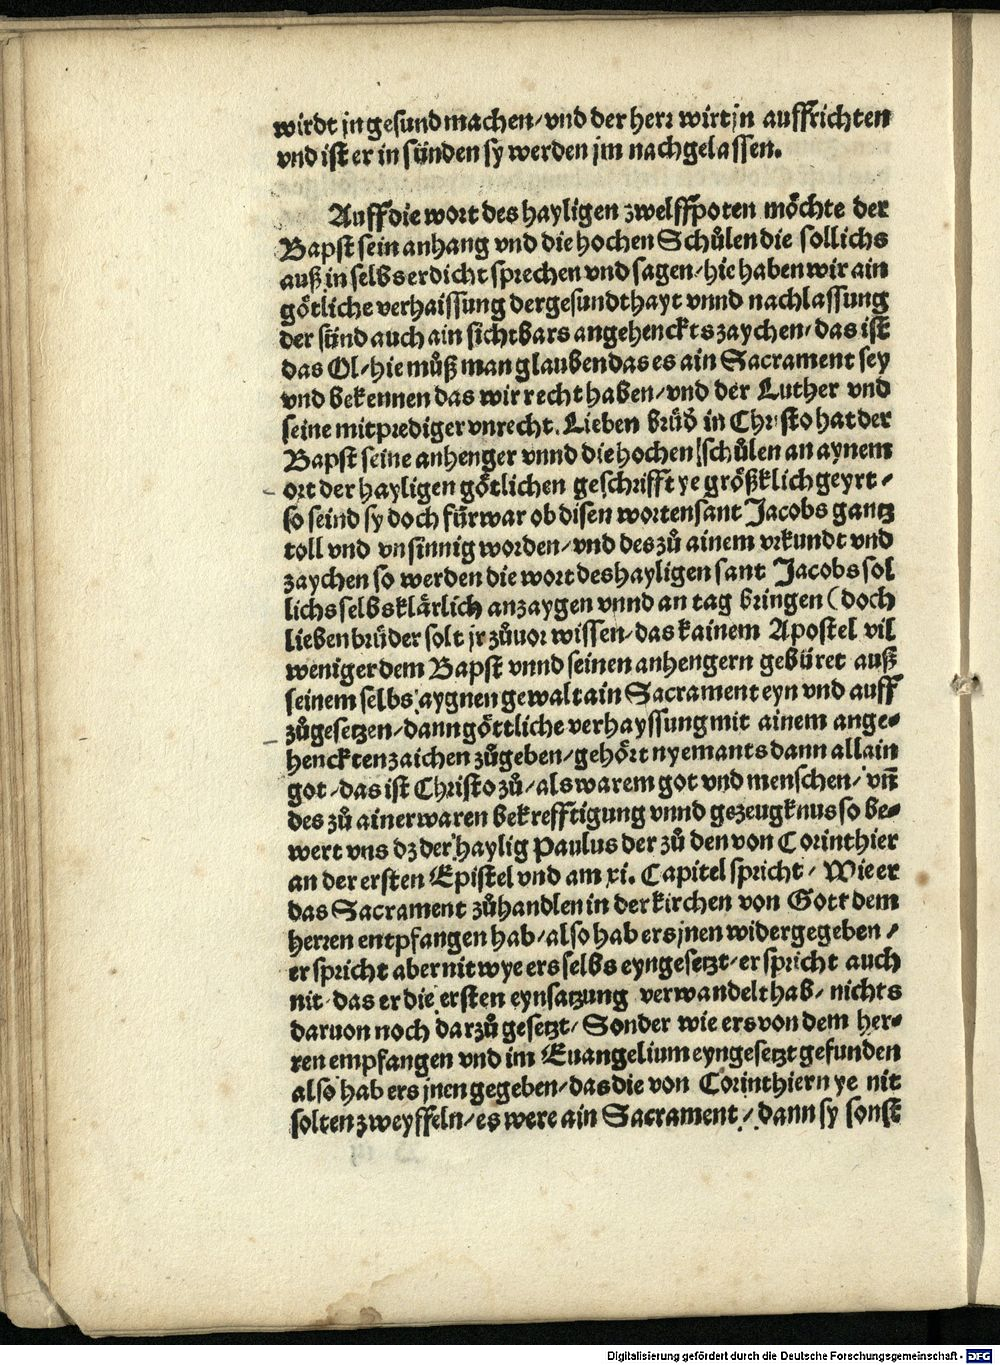 wirdt jn gesund machen/ vnd der herr wirt jn auffrichten
vnd ist er in sünden sy werden jm nachgelassen.
Auff die wort des hayligen zwelffpoten möchte der
Bapst sein anhang vnd die hochen Schůlen die sollichs
auß in selbs erdicht sprechen vnd sagen/ hie haben wir ain
götliche verhaissung der gesundthayt vnnd nachlassung
der sünd auch ain sichtbars angehenckts zaychen/ das ist
das Ol/ hie můß man glauben das es ain Sacrament sey
vnd bekennen das wir recht haben/ vnd der Luther vnd
seine mitprediger vnrecht. Lieben brüd̕ in Christo hat der
Bapst seine anhenger vnnd die hochen schůlen an aynem
ort der hayligen götlichen geschrifft ye größklich geyrt/
so seind sy doch fürwar ob disen worten sant Jacobs gantz
toll vnd vnsinnig worden/ vnd des zů ainem vrkundt vnd
zaychen so werden die wort des hayligen sant Jacobs sol
lichs selbs klärlich anzaygen vnnd an tag bringen (doch
lieben brüder solt jr zůuor wissen/ das kainem Apostel vil
weniger dem Bapst vnnd seinen anhengern gebüret auß
seinem selbs aygnen gewalt ain Sacrament eyn vnd auff
zůgesetzen/ dann göttliche verhayssung mit ainem ange-
henckten zaichen zůgeben/ gehört nyemants dann allain
got/ das ist Christo zů/ als warem got vnd menschen/ vn̄
des zů ainer waren bekrefftigung vnnd gezeugknus so be-
wert vns dz der haylig Paulus der zů den von Corinthier
an der ersten Epistel vnd am xi. Capitel spricht/ Wie er
das Sacrament zůhandlen in der kirchen von Gott dem
herren entpfangen hab/ also hab ers jnen widergegeben/
er spricht aber nit wye ers selbs eyngesetzt/ er spricht auch
nit das er die ersten eynsatzung verwandelt hab/ nichts
daruon noch darzů gesetzt/ Sonder wie ers von dem her-
ren empfangen vnd im Euangelium eyngesetzt gefunden
also hab ers jnen gegeben/ das die von Corinthiern ye nit
solten zweyffeln/ es were ain Sacrament/ dann sy sonst
Digitalisierung gefördert durch die Deutsche Forschungsgemeinschaft - DFG